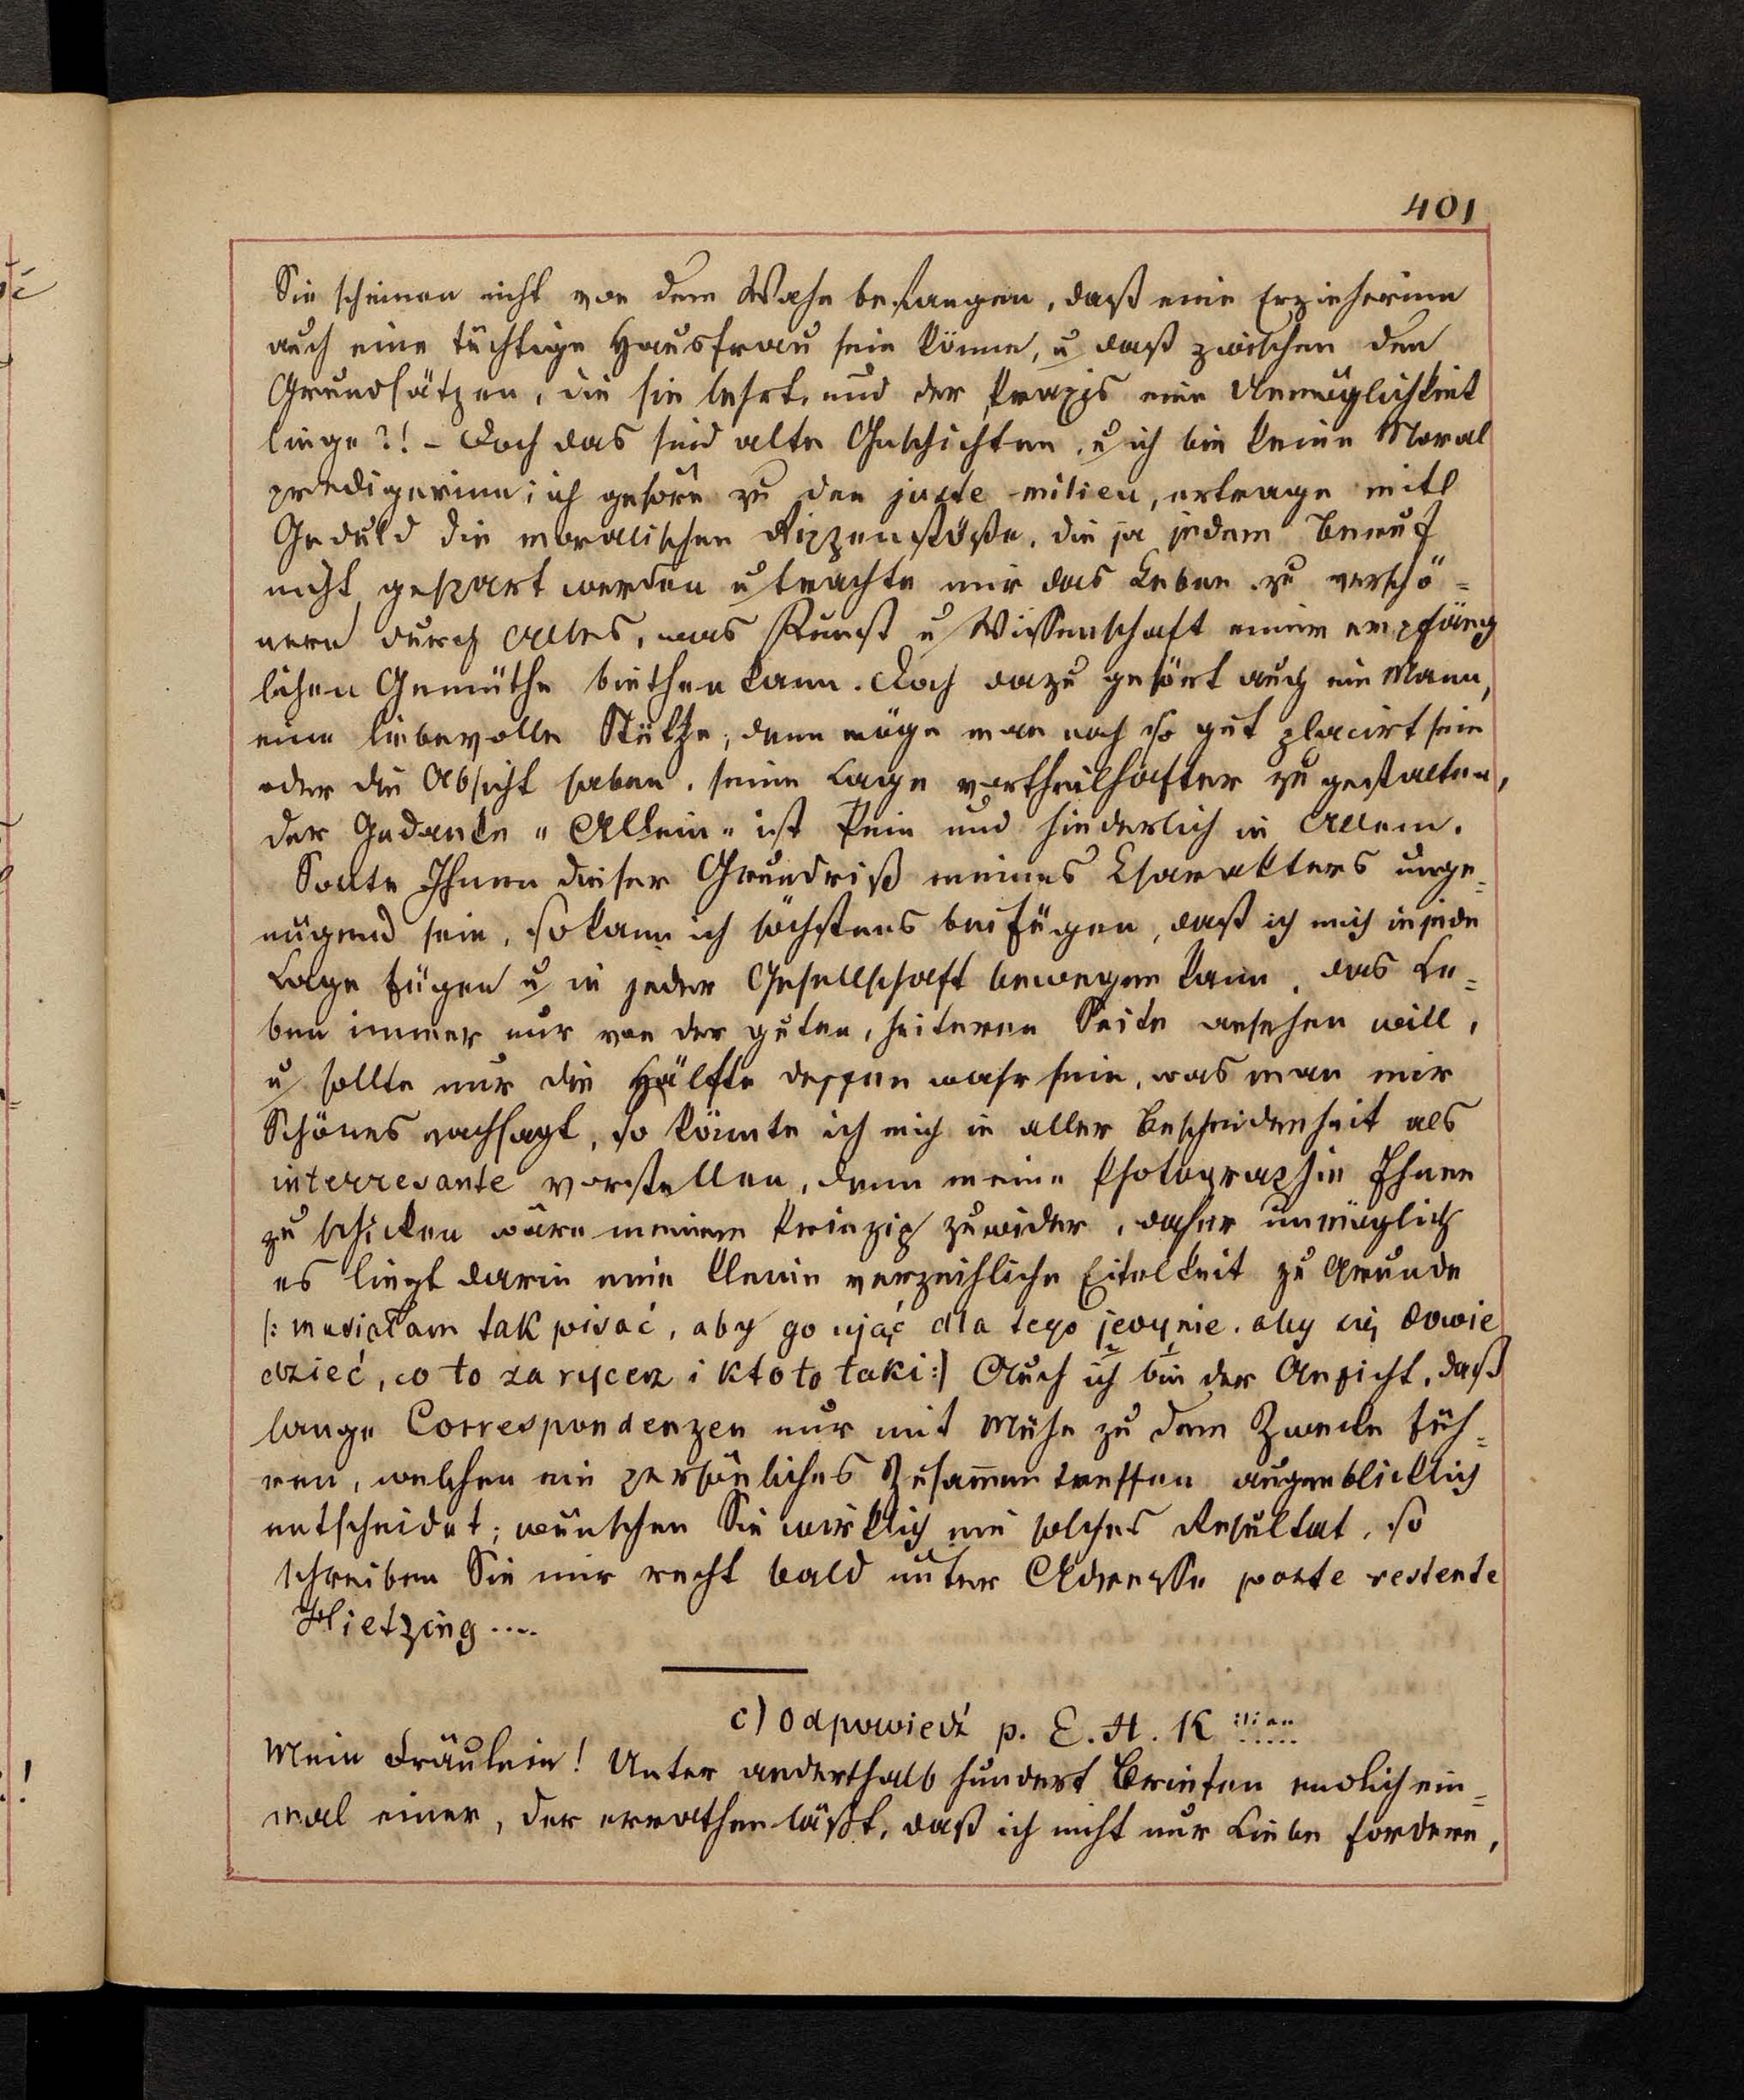 401
Sie scheinen nicht von dem Wahn befangen, daß eine Erzieherinn
auch eine tüchtige Hausfrau sein könne, u daß zwischen den
Grundsätzen, die sie lehrt, und der Praxis eine Unmöglichkeit
liege?! – Doch das sind alte Geschichten, u ich bin keine Moral
predigerinn; ich gehöre zu den juste-milieu, ertrage mit
Geduld die moralischen Rippenstöße, die ja jedem Beruf
nicht gespart werden u trachte mir das Leben zu verschö=
nern durch Alles, was Kunst u Wissenschaft einem empfäng
lichen Gemüthe biethen kann. Doch dazu gehört auch ein Mann,
eine liebevolle Stütze, denn möge man noch so gut placirt sein
oder die Absicht haben, seine Lage vortheilhafter zu gestalten,
der Gedanke „Allein" ist Pein und hinderlich in Allem.
Sollte Ihnen dieser Grundriß meines Charakters unge=
nügend sein, so kann ich höchstens beifügen, daß ich mich in jede
Lage fügen u in jeder Gesellschaft bewegen kann, das Le=
ben immer nur von der guten, heiteren Seite ansehen will,
u sollte nur die Hälfte dessen wahr sein, was man mir
Schönes nachsagt, so könnte ich mich in aller Bescheidenheit als
interresante vorstellen, denn meine Photographie Ihnen
zu schicken wäre meinem Prinzip zuwider, daher unmöglich
es liegt darin eine kleine verzeihliche Eitelkeit zu Grunde
/: musiałam tak pisać, aby go ująć dla tego jedynie, aby się dowie
dzieć, co to za rycerz i kto to taki :/ Auch ich bin der Ansicht, daß
lange Correspondenzen nur mit Mühe zu dem Zwecke füh=
ren, welchen ein persönliches Zusammentreffen augenblicklich
entscheidet; wünschen Sie wirklich ein solches Resultat, so
schreiben Sie mir recht bald unter Adresse poste restente
Hietzing ....
c) Odpowiedź p. E. H. K
Mein Fräulein! Unter anderthalb hundert Briefen endlich ein=
mal einer, der errathen läßt, daß ich nicht nur Liebe fordere,